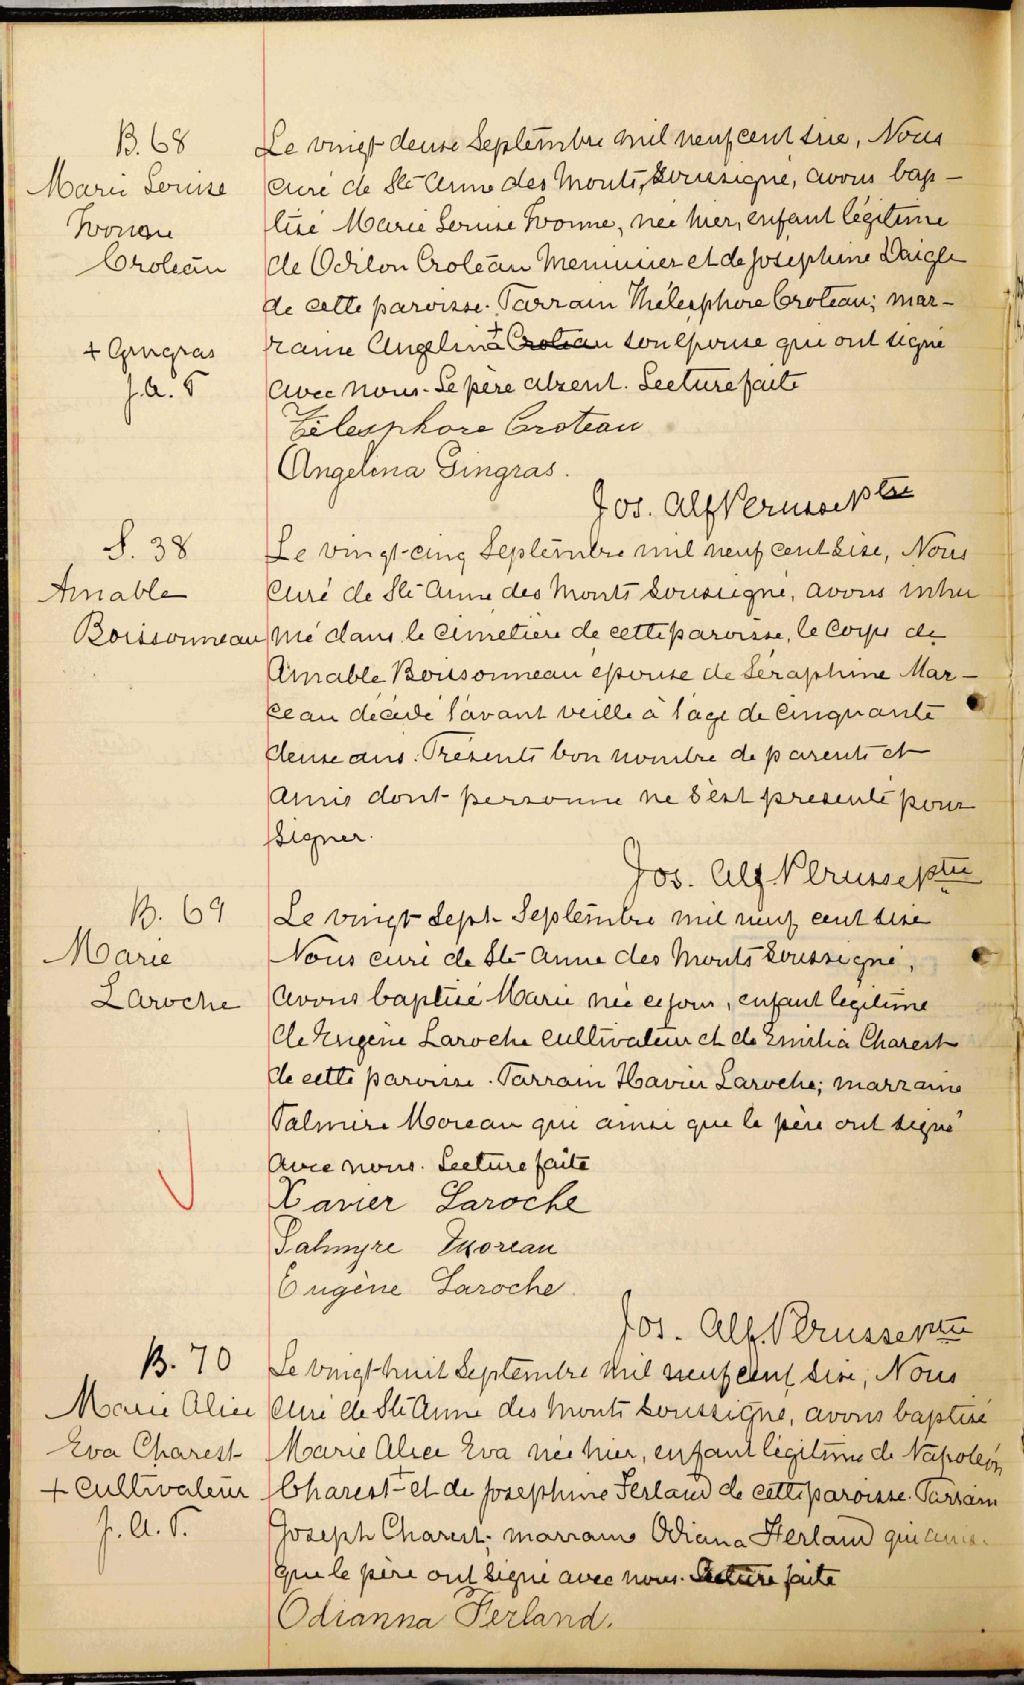 B. 68
Marie Louise
Yvonne
Croteau
+ Gingras
J. A. P.
Le vingt deux Septembre mil neuf cent six, Nous
curé de Ste Anne des Monts, soussigné, avons bap-
tisé Marie Louise Yvonne, née hier, enfant légitime
de Odilon Croteau Menuisier et de Joséphine Daigle
de cette paroisse. Parrain Thélesphore Croteau; mar-
raine Angelina + Croteau son épouse qui ont signé
avec nous. Le père absent. Lecture faite
Télesphore Croteau
Angelina Gingras.
Jos. Alf. Perusse Ptre
S. 38
Amable
Boissonneau
Le vingt-cinq Septembre mil neuf cent six, Nous
curé de Ste Anne des Monts soussigné, avons inhu
mé dans le cimetière de cette paroisse, le corps de
Amable Boissonneau épouse de Séraphine Mar-
ceau décédé l'avant veille à l'age de cinquante
deux ans. Présents bon nombre de parents et
amis dont personne ne s'est présenté pour
signer.
Jos. Alf. Perusse ptre
B. 69
Marie
Laroche
Le vingt Sept Septembre mil neuf cent six
Nous curé de Ste Anne des Monts soussigné,
avons baptisé Marie née ce jour, enfant légitime
de Eugène Laroche cultivateur et de Emilia Charest
de cette paroisse. Parrain Xavier Laroche; marraine
Palmire Moreau qui ainsi que le père ont signé
avec nous. Lecture faite
Xavier Laroche
Palmyre Moreau
Eugène Laroche.
Jos. Alf. Perusse ptre
B. 70
Marie Alice
Eva Charest
+ Cultivateur
J. A. P.
Le vingt-huit Septembre mil neuf cent six, Nous
curé de Ste Anne des Monts soussigné, avons baptisé
Marie Alice Eva née hier, enfant légitime de Napoléon
Charest + et de Josephine Ferland de cette paroisse. Parrain
Joseph Charest; marraine Odiana Ferland qui ainsi
que le père ont signé avec nous. Lecture faite
Odianna Ferland.